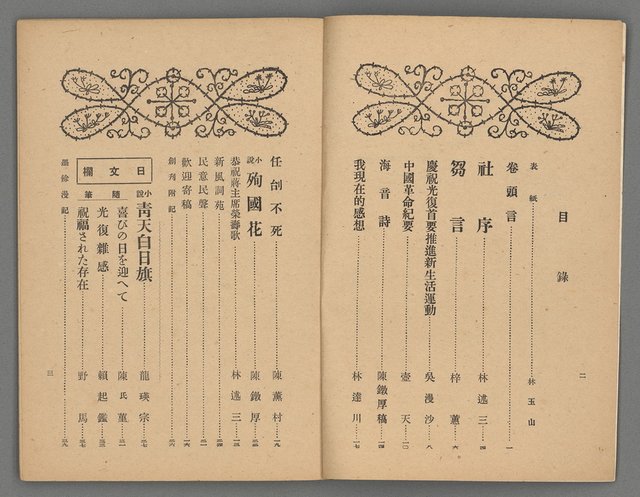 目錄
表紙 林玉山
卷頭言 一
社序 林逃三 四
芻言 梓薰 六
慶祝光復首要推進新生活運動 吳漫沙 八
中國革命紀要 壺天 二〇
海音詩 陳鐓厚稿 二四
我現在的感想 林達川 二七
二
任创不死 陳薰村 一九
小說 殉國花 陳鐓厚
恭祝蔣主席榮壽歌 林逃三
新風詞苑
民意民聲
歡迎寄稿
創刊附記
日文欄
小說 靑天白日旗 龍瑛宗
隨筆 喜びの日を迎へて 陳氏菫
光復雜感 賴起鑑
祝福された存在 野馬
漫記
三